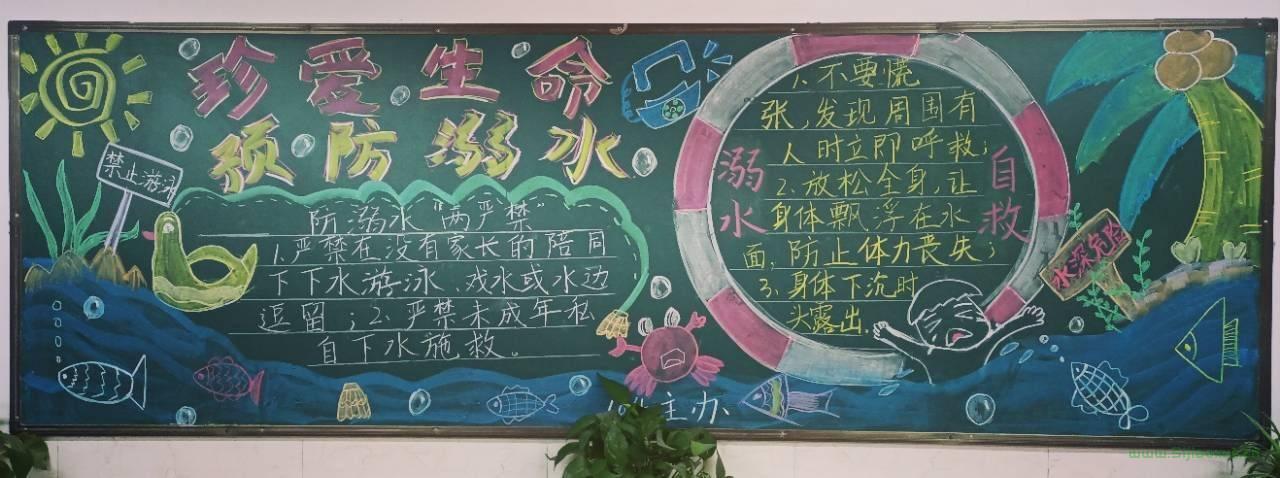 珍爱生命
预防溺水
禁止游泳
防溺水"两严禁"
1.严禁在没有家长的陪同
下下水游泳、戏水或水边
逗留；2.严禁未成年私
自下水施救。
溺水
自救
1.不要慌
张,发现周围有
人时立即呼救;
2.放松全身,让
身体飘浮在水
面,防止体力丧失;
3.身体下沉时
头露出.
水深危险
主办